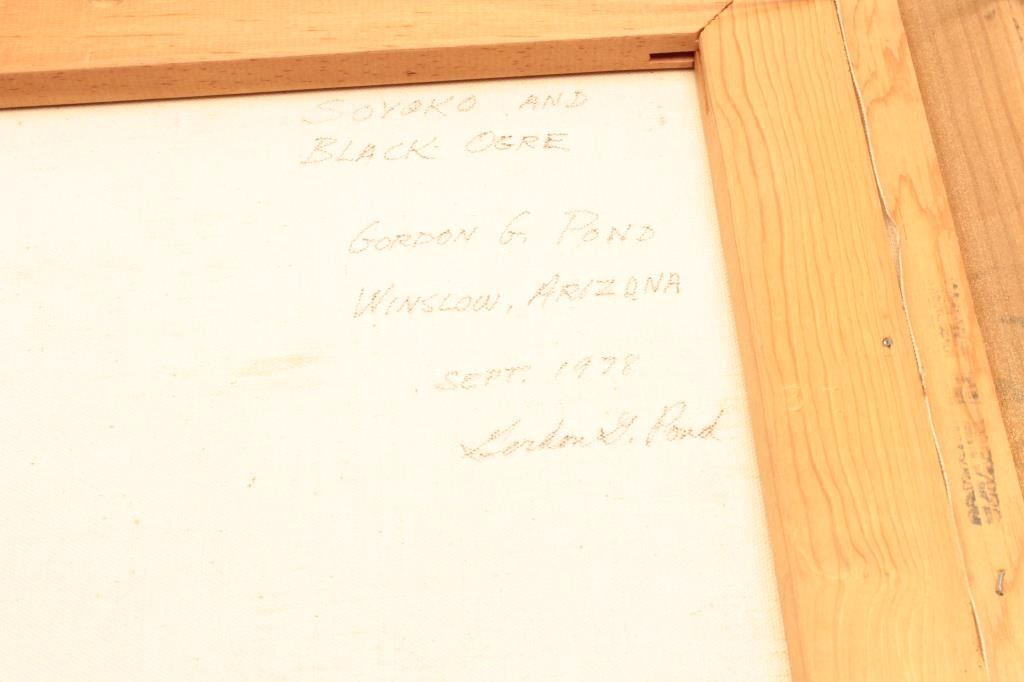 SOYOKO AND
BLACK OGRE
GORDON G. POND
WINSLOW, ARIZONA
SEPT. 1978
Gordon G. Pond